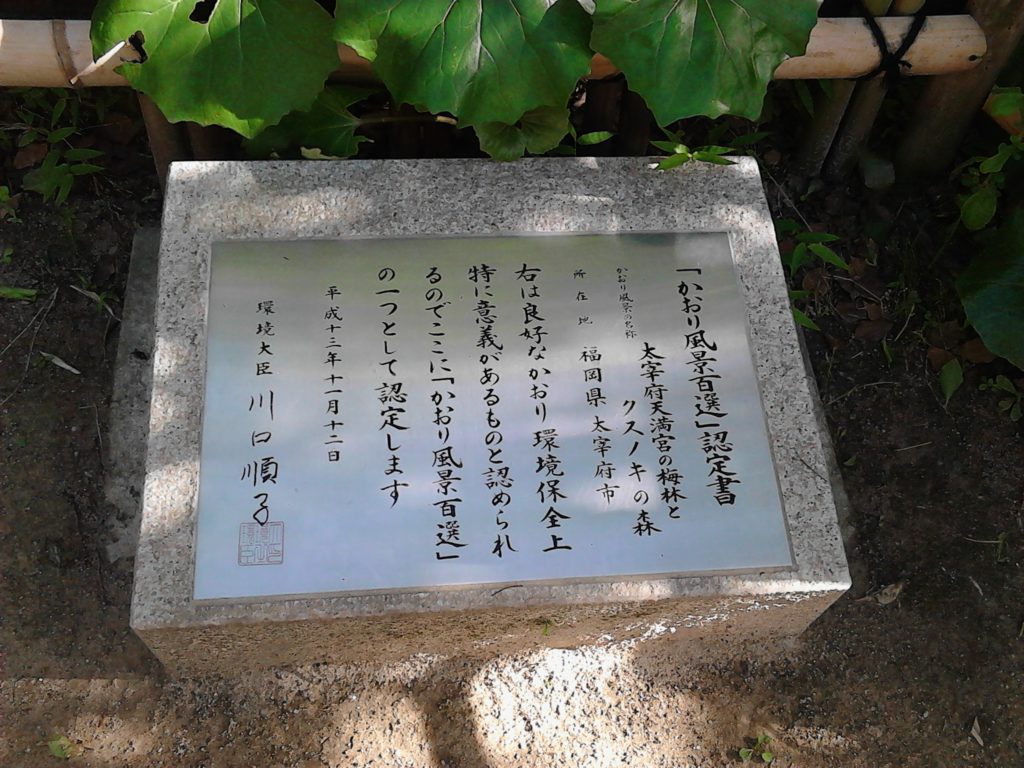 「かおり風景百選」認定書
かおり風景の名称 太宰府天満宮の梅林と
クスノキの森
所在地 福岡県太宰府市
右は良好なかおり環境保全上
特に意義があるものと認められ
るのでここに「かおり風景百選」
の一つとして認定します
平成十三年十一月十二日
環境大臣 川口順子